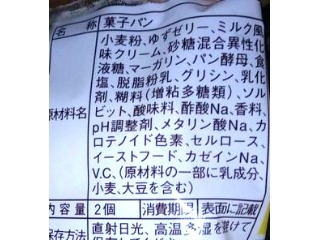 名 称 菓子パン
小麦粉、ゆずゼリー、ミルク風
味クリーム、砂糖混合異性化
液糖、マーガリン、パン酵母、食
塩、脱脂粉乳、グリシン、乳化
剤、糊料(増粘多糖類)、ソル
原材料名 ビット、酸味料、酢酸Na、香料、
pH調整剤、メタリン酸Na、カ
ロテノイド色素、セルロース、
イーストフード、カゼインNa、
V.C、(原材料の一部に乳成分、
小麦、大豆を含む)
内容量 2個 消費期限 表面に記載
保存方法 直射日光、高温多湿を避けて